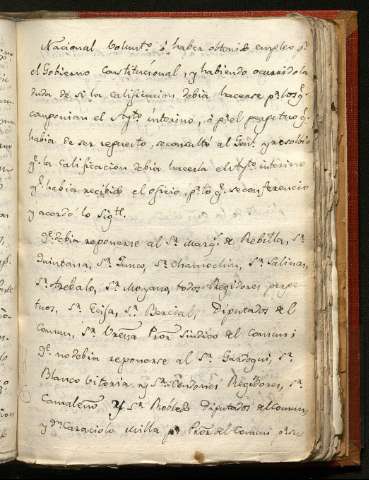 Nacional Volunt.º ó haber obtenido empleo p.r
el Gobierno Constitucional, y habiendo ocurrido la
duda de si la calificacion debia hacerse p.r los q.e
componian el Ay.to interino, ó p.r el perpetuo q.e
habia de ser repuesto, se consultó al Gov.r y resolvió
q.e la calificacion debia hacerla el Ay.to interino
q.e habia recibido el oficio, p.r lo q.e se conferencio
y acordó lo sig.te
q.e debia reponerse al S.r Marq.s de Rebilla, S.r
Quintana, S.r Junco, S.r Chamochin, S.r Salinas,
S.r Arebalo, S.r Moyano, todos Regidores perpe
tuos, S.r Eguia, S.r Berzal, Diputados del
Comun, S.r Urena Pror. Sindico del Comun:
Q.e no debia reponerse al S.r Gardoqui, S.r
Blanco Vitoria, y S.r Cardenes Regidores, S.r
Camaleño y S.r Robles Diputados del Comun,
y D.n Caraciolo Milla p.r Pror. del Comun